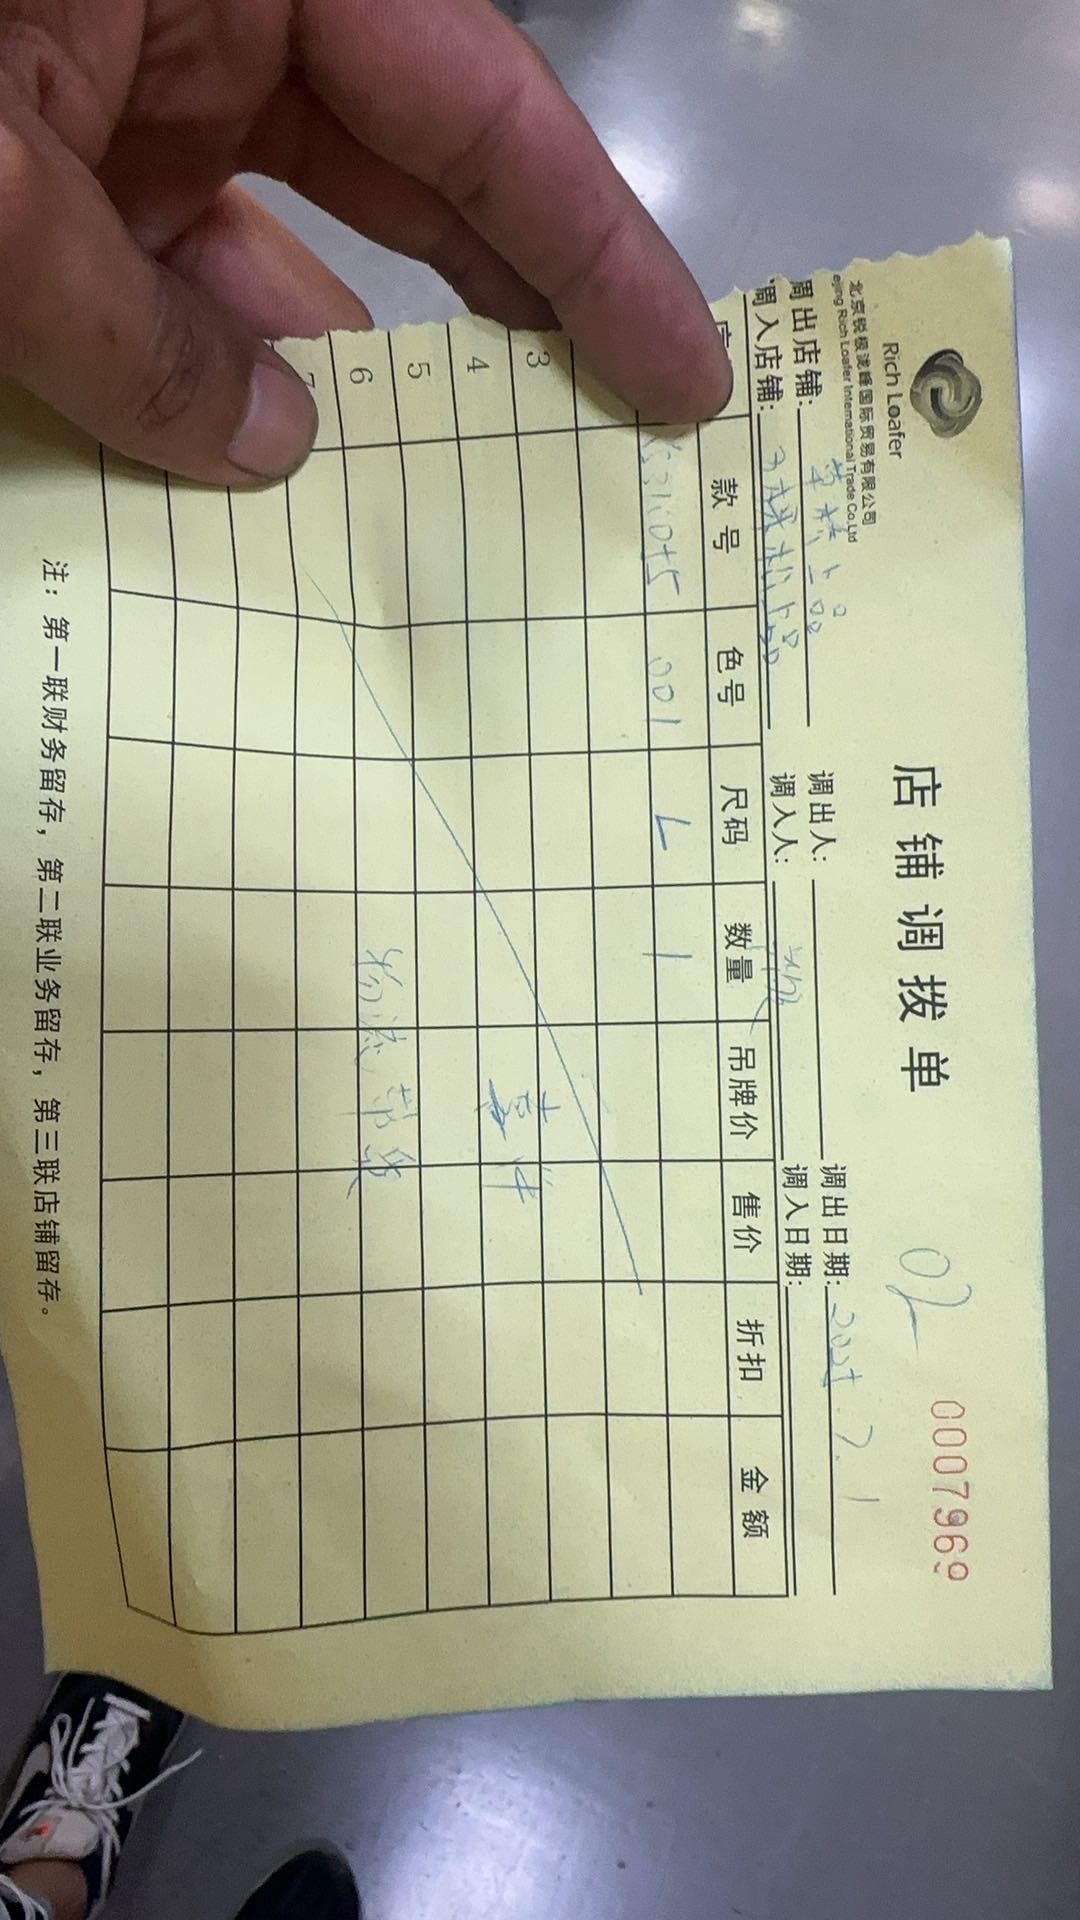 Rich Loafer
北京锐极泷峰国际贸易有限公司
eijing Rich Loafer International Trade Co.,Ltd
店铺调拨单
02
0007969
周出店铺: 调出人: 调出日期:
调入店铺: 调入人: 调入日期:
款号 色号 尺码 数量 吊牌价 售价 折扣 金额
001 L 1
3
4
5
6
物流带货
注：第一联财务留存，第二联业务留存，第三联店铺留存。